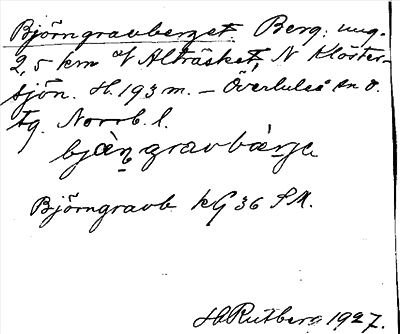 Björngravberget. Berg, ung.
2,5 km av Alträsket, N Klöster-
sjön. H. 193 m. – Överluleå sn o.
tg. Norrb. l.
bjàn̥gravbæ̀rja
Björngravb. kG 36 SM.
H Rutberg 1927.